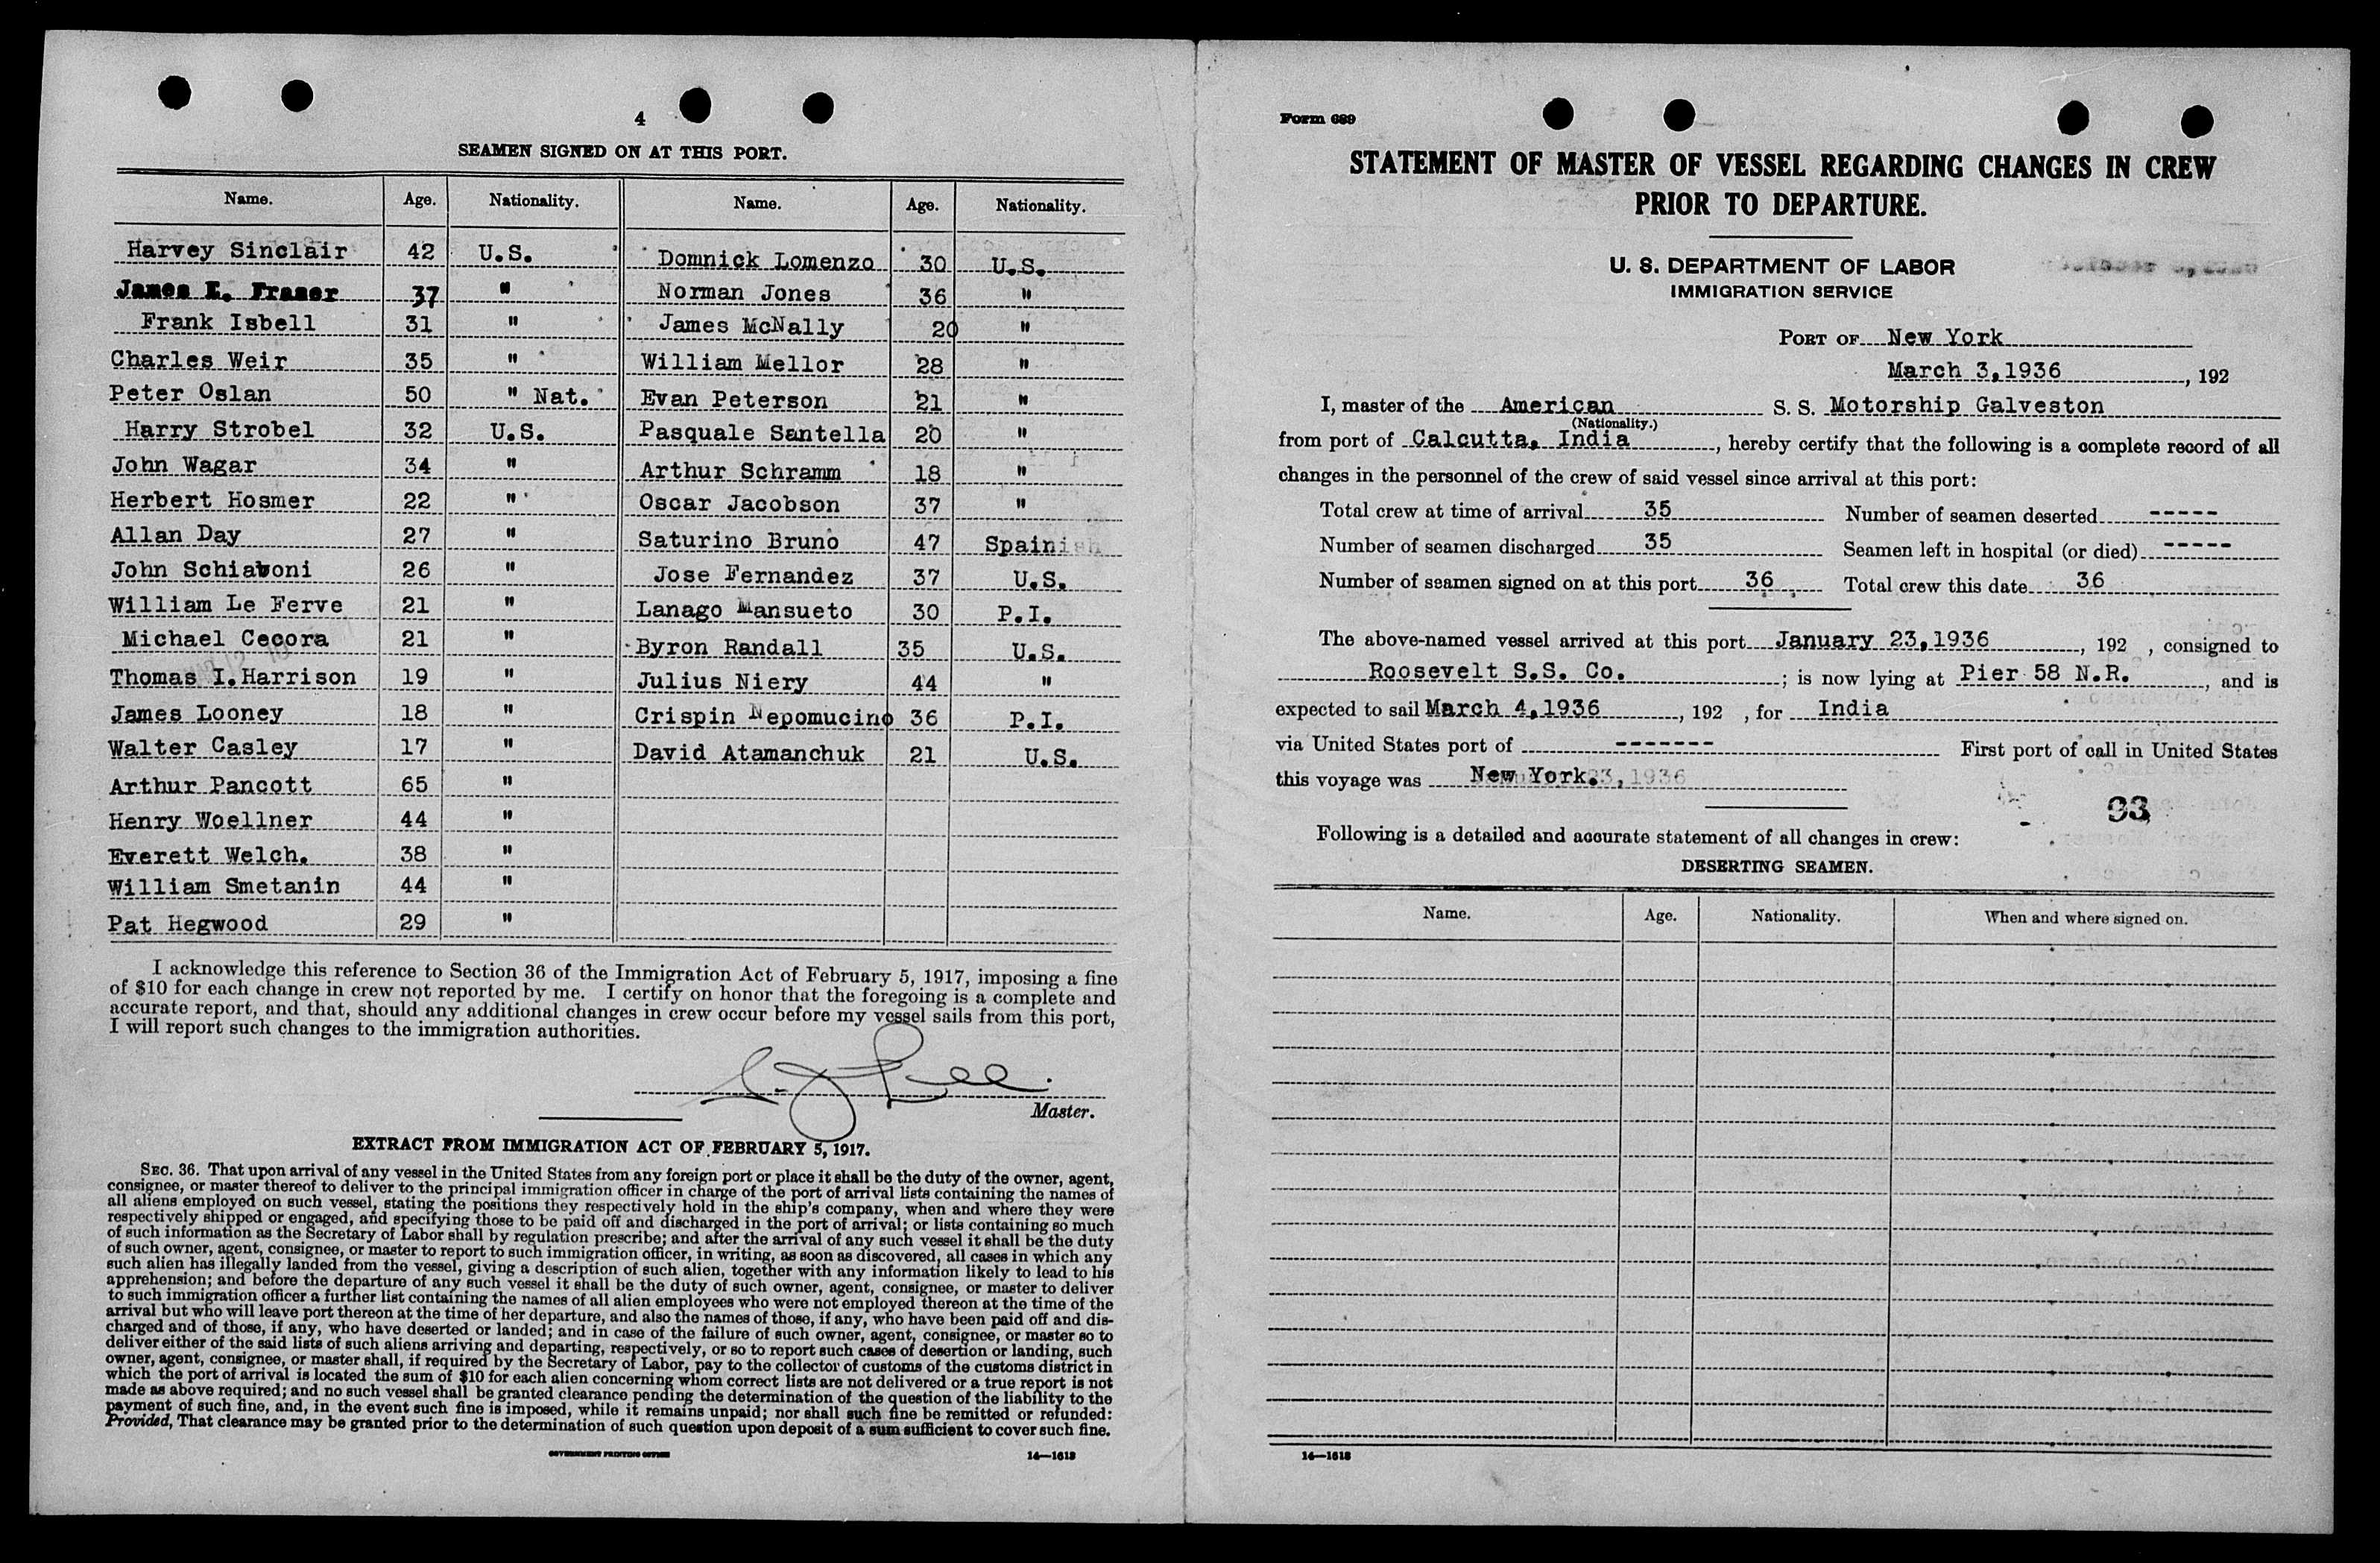 4
SEAMEN SIGNED ON AT THIS PORT.
Name. Age. Nationality. Name. Age. Nationality.
Harvey Sinclair 42 U.S. Domnick Lomenzo 30 U.S.
James E. Fraser 37 " Norman Jones 36 "
Frank Isbell 31 " James McNally 20 "
Charles Weir 35 " William Mellor 28 "
Peter Oslan 50 " Nat. Evan Peterson 21 "
Harry Strobel 32 U.S. Pasquale Santella 20 "
John Wagar 34 " Arthur Schramm 18 "
Herbert Hosmer 22 " Oscar Jacobson 37 "
Allan Day 27 " Saturino Bruno 47 Spain
John Schiavoni 26 " Jose Fernandez 37 U.S.
William Le Ferve 21 " Lanago Mansueto 30 P.I.
Michael Cecora 21 " Byron Randall 35 U.S.
Thomas I. Harrison 19 " Julius Niery 44 "
James Looney 18 " Crispin Nepomucino 36 P.I.
Walter Casley 17 " David Atamanchuk 21 U.S.
Arthur Pancott 65 "
Henry Woellner 44 "
Everett Welch. 38 "
William Smetanin 44 "
Pat Hegwood 29 "
I acknowledge this reference to Section 36 of the Immigration Act of February 5, 1917, imposing a fine
of $10 for each change in crew not reported by me. I certify on honor that the foregoing is a complete and
accurate report, and that, should any additional changes in crew occur before my vessel sails from this port,
I will report such changes to the immigration authorities.
Master.
EXTRACT FROM IMMIGRATION ACT OF FEBRUARY 5, 1917.
SEC. 36. That upon arrival of any vessel in the United States from any foreign port or place it shall be the duty of the owner, agent,
consignee, or master thereof to deliver to the principal immigration officer in charge of the port of arrival lists containing the names of
all aliens employed on such vessel, stating the positions they respectively hold in the ship's company, when and where they were
respectively shipped or engaged, and specifying those to be paid off and discharged in the port of arrival; or lists containing so much
of such information as the Secretary of Labor shall by regulation prescribe; and after the arrival of any such vessel it shall be the duty
of such owner, agent, consignee, or master to report to such immigration officer, in writing, as soon as discovered, all cases in which any
such alien has illegally landed from the vessel, giving a description of such alien, together with any information likely to lead to his
apprehension; and before the departure of any such vessel it shall be the duty of such owner, agent, consignee, or master to deliver
to such immigration officer a further list containing the names of all alien employees who were not employed thereon at the time of the
arrival but who will leave port thereon at the time of her departure, and also the names of those, if any, who have been paid off and dis-
charged and of those, if any, who have deserted or landed; and in case of the failure of such owner, agent, consignee, or master so to
deliver either of the said lists of such aliens arriving and departing, respectively, or so to report such cases of desertion or landing, such
owner, agent, consignee, or master shall, if required by the Secretary of Labor, pay to the collector of customs of the customs district in
which the port of arrival is located the sum of $10 for each alien concerning whom correct lists are not delivered or a true report is not
made as above required; and no such vessel shall be granted clearance pending the determination of the question of the liability to the
payment of such fine, and, in the event such fine is imposed, while it remains unpaid; nor shall such fine be remitted or refunded:
Provided, That clearance may be granted prior to the determination of such question upon deposit of a sum sufficient to cover such fine.
GOVERNMENT PRINTING OFFICE 14—1613
Form 689
STATEMENT OF MASTER OF VESSEL REGARDING CHANGES IN CREW
PRIOR TO DEPARTURE.
U. S. DEPARTMENT OF LABOR
IMMIGRATION SERVICE
PORT OF New York
March 3, 1936, 192
I, master of the American S. S. Motorship Galveston
(Nationality.)
from port of Calcutta, India, hereby certify that the following is a complete record of all
changes in the personnel of the crew of said vessel since arrival at this port:
Total crew at time of arrival 35 Number of seamen deserted -----
Number of seamen discharged 35 Seamen left in hospital (or died) -----
Number of seamen signed on at this port 36 Total crew this date 36
The above-named vessel arrived at this port January 23, 1936, 192 , consigned to
Roosevelt S.S. Co.; is now lying at Pier 58 N.R., and is
expected to sail March 4, 1936, 192 , for India
via United States port of ------- First port of call in United States
this voyage was New York. 23, 1936
93
Following is a detailed and accurate statement of all changes in crew:
DESERTING SEAMEN.
Name. Age. Nationality. When and where signed on.
14—1613